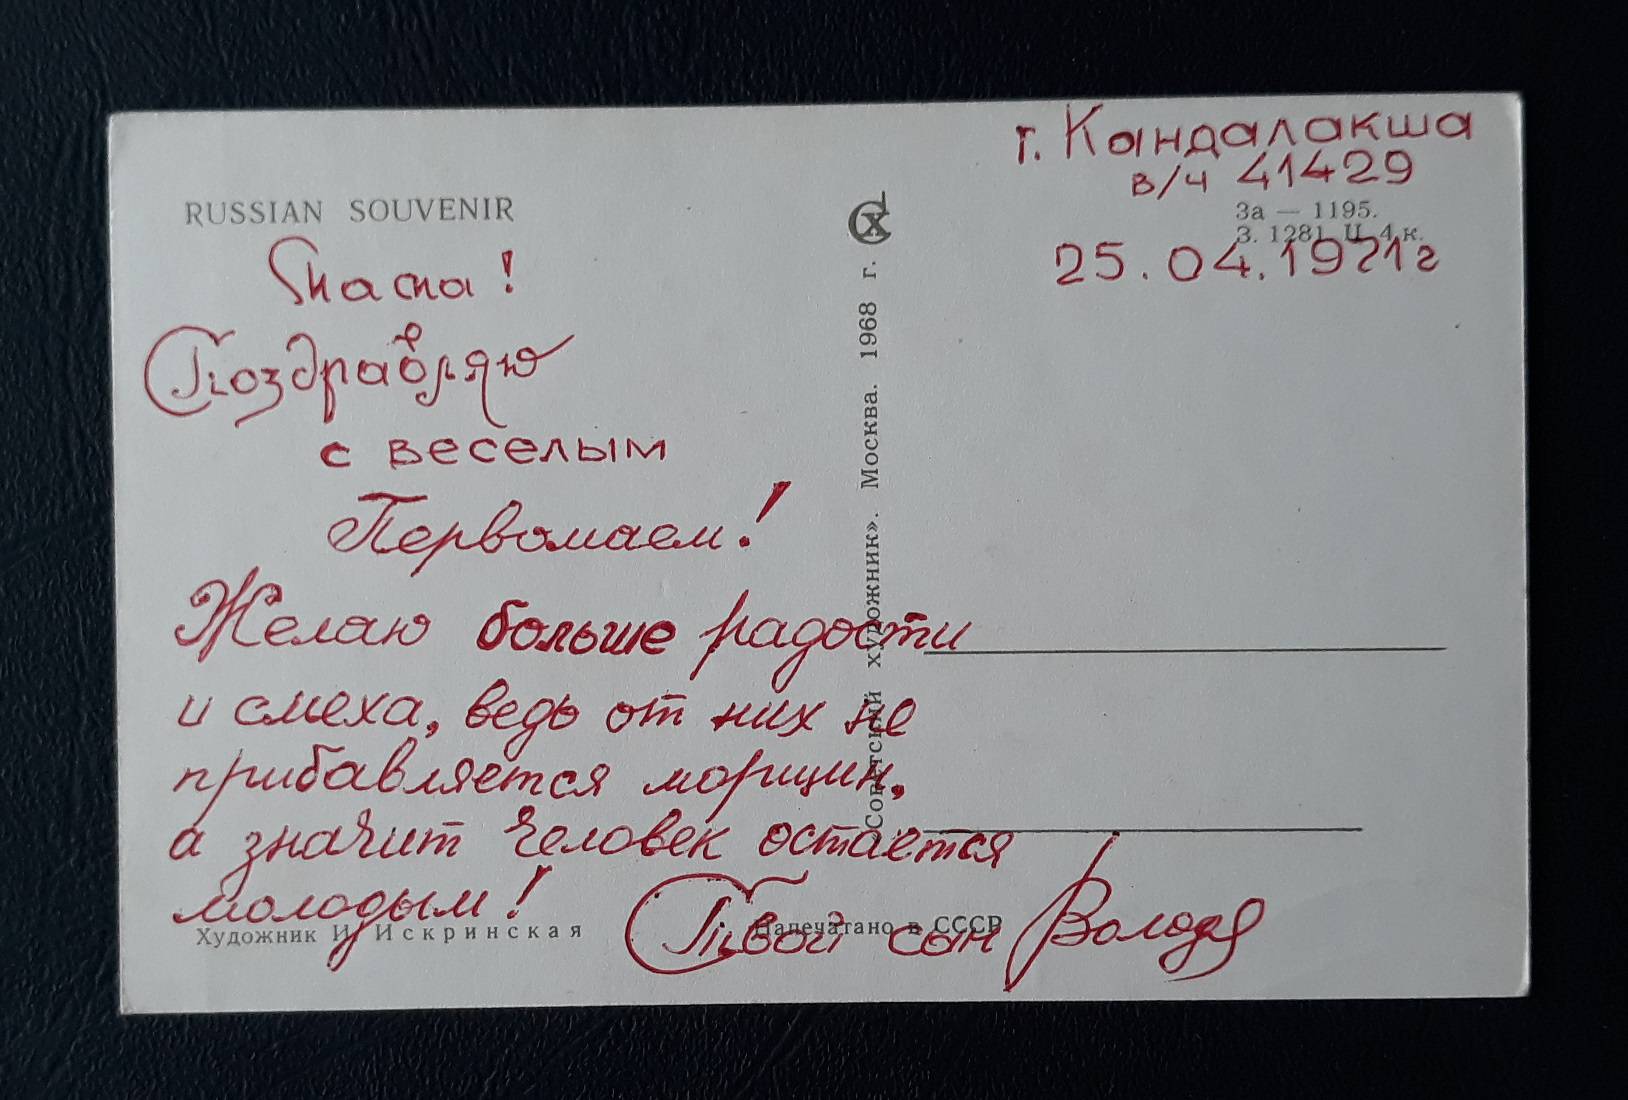 г. Кандалакша
в/ч 41429
25.04.1971г
RUSSIAN SOUVENIR
СХ
За — 1195.
З. 1281. Ц. 4 к.
Мама!
Поздравляю
с веселым
Первомаем!
Желаю больше радости
и смеха, ведь от них не
прибавляется морщин,
а значит человек остается
молодым!
Твой сын Володя
«Советский художник». Москва. 1968 г.
Художник И. Искринская
Напечатано в СССР